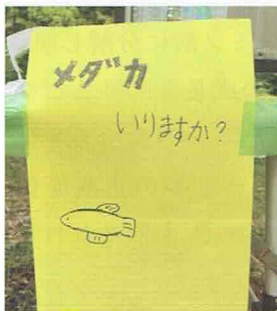 メダカ
いりますか?